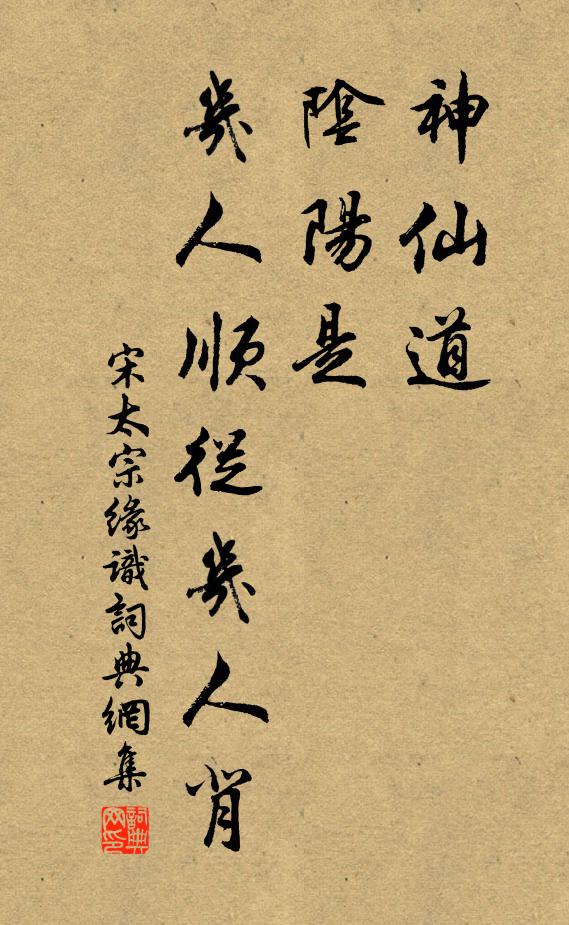 神仙道
陰陽是
幾人順從幾人肯
宋太宗緣識詞典網集
詞典网印